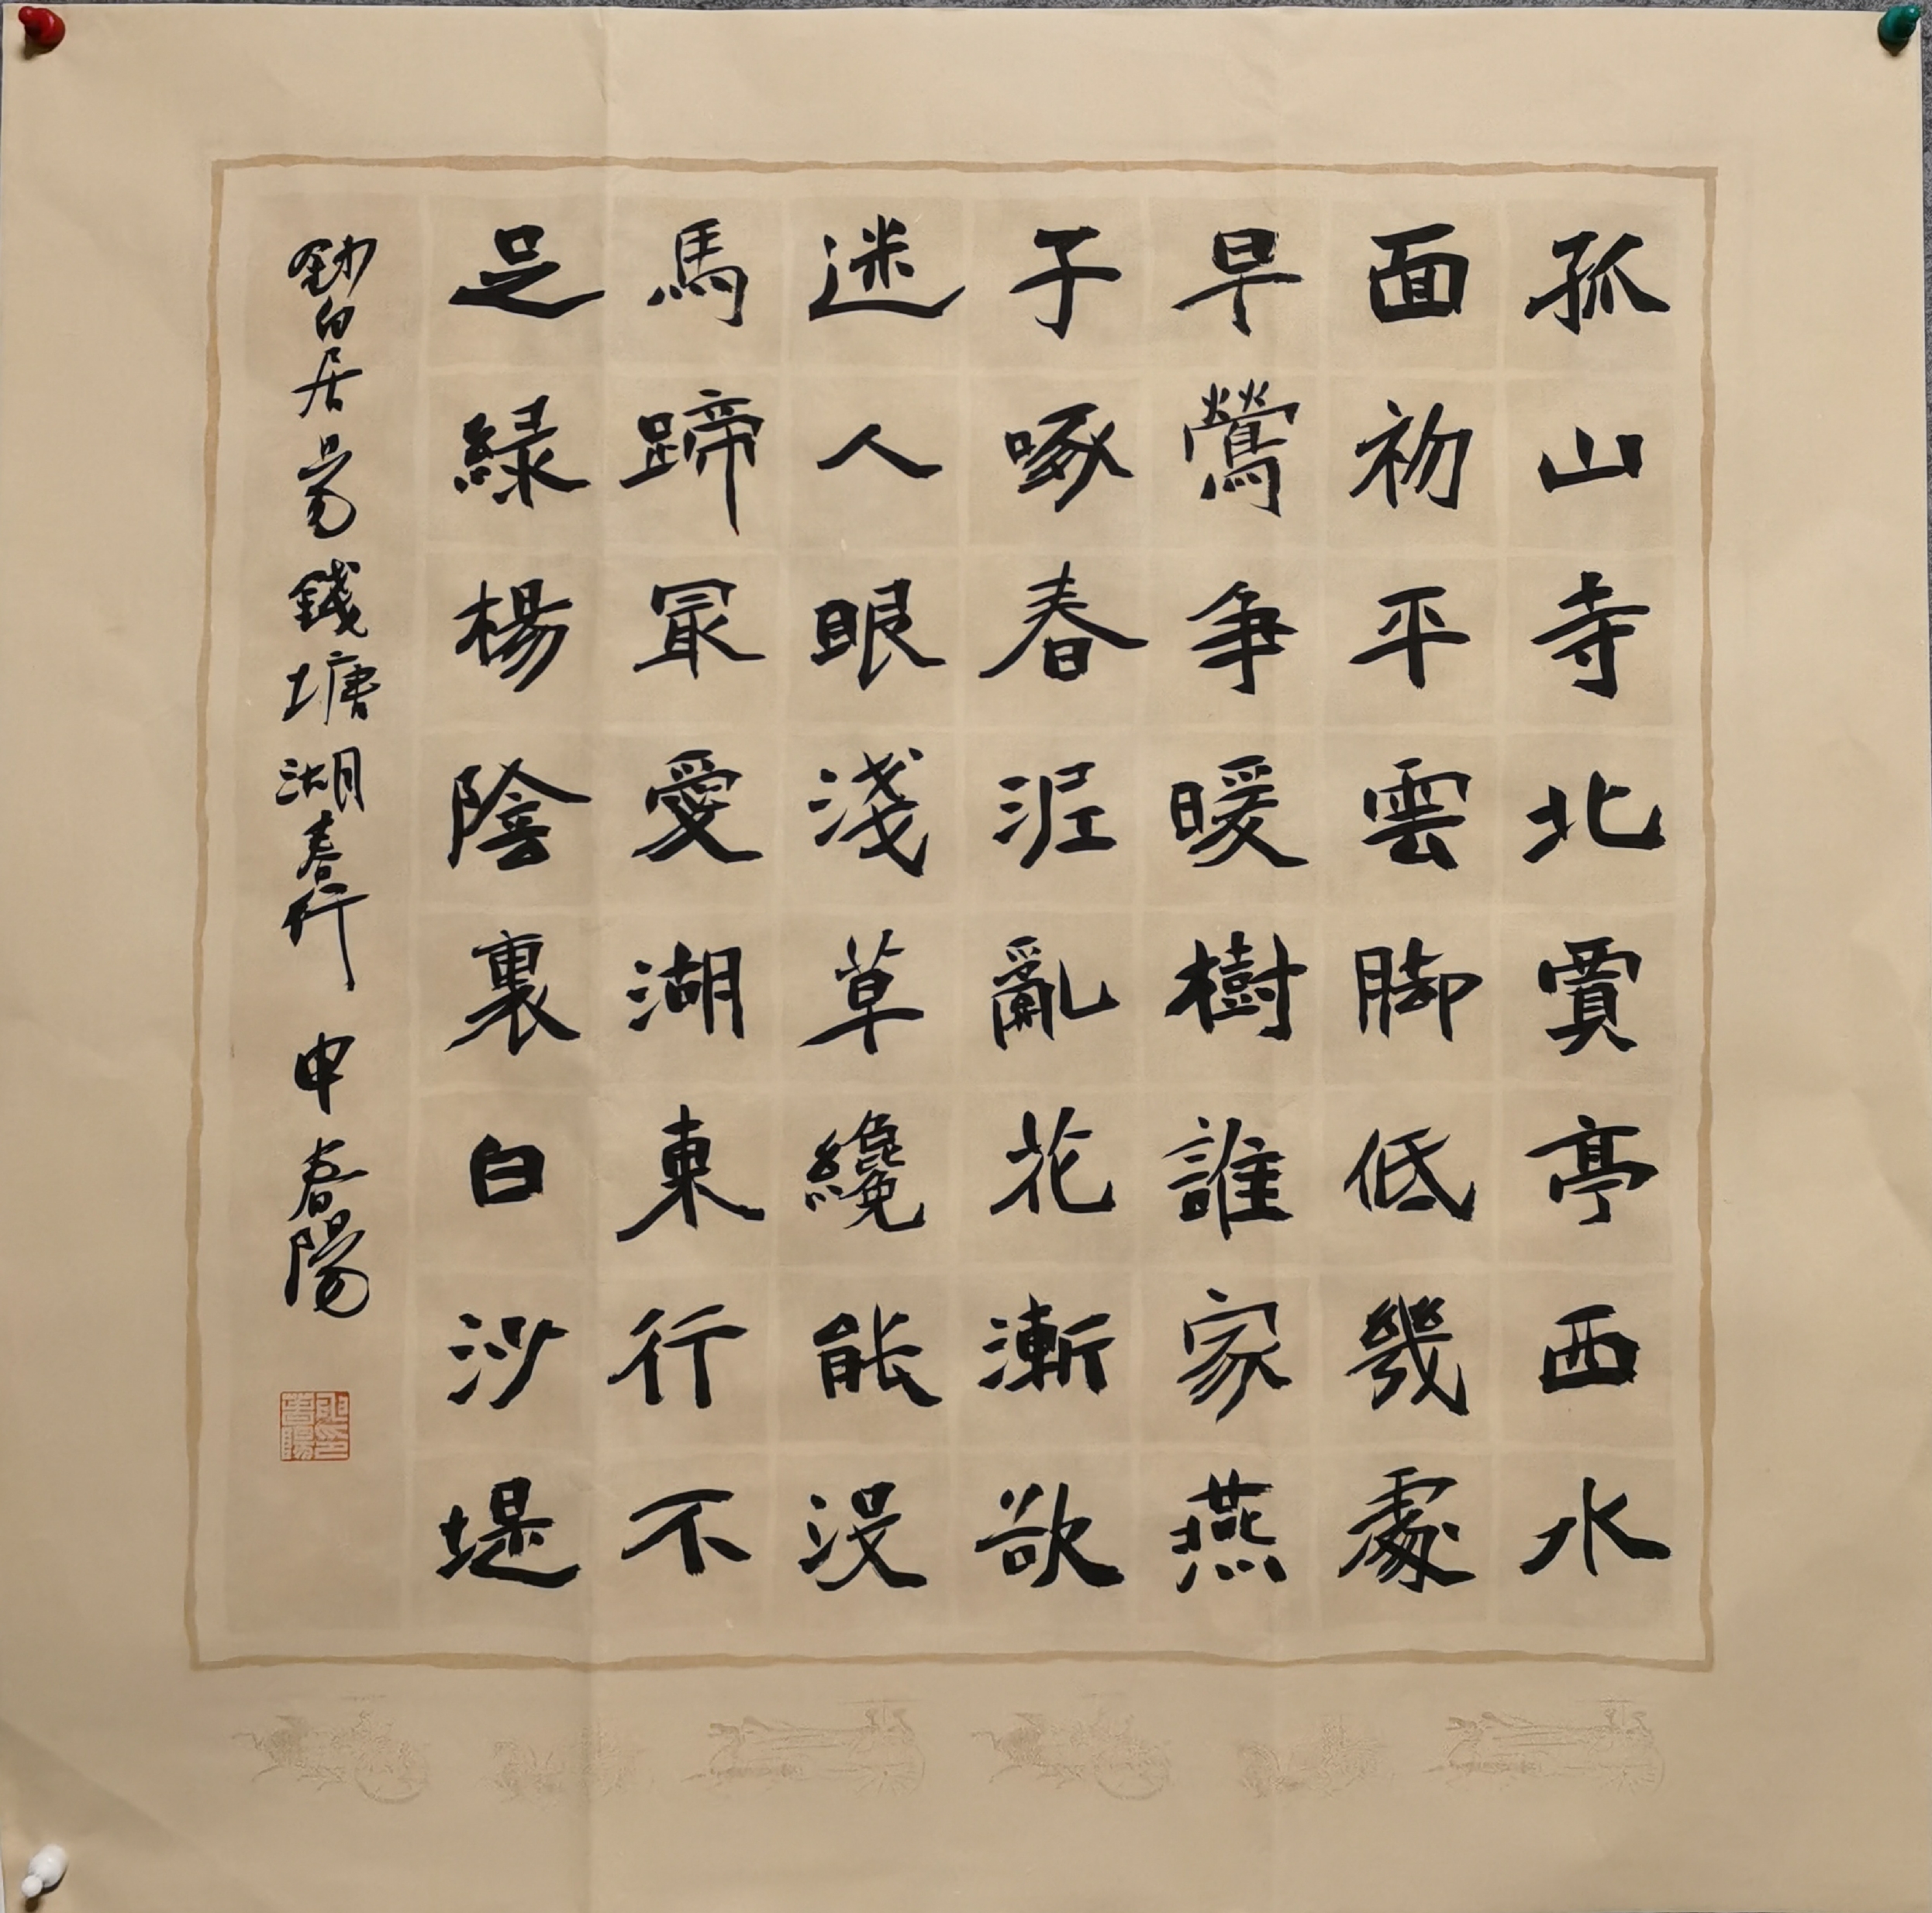 孤山寺北賈亭西水
面初平雲脚低幾處
早鶯争暖樹誰家燕
子啄春泥亂花漸欲
迷人眼淺草纔能没
馬蹄冣愛湖東行不
足緑楊陰裏白沙堤
鈔白居易錢塘湖春行 申春陽